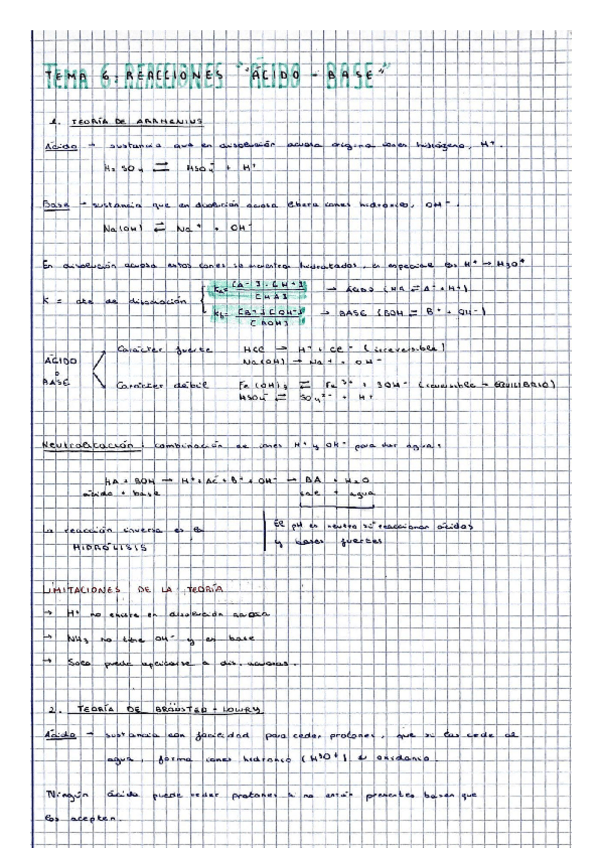 TEMA 6: REACCIONES "ÁCIDO - BASE"
1. TEORÍA DE ARRHENIUS
Ácido → sustancia que en disolución acuosa origina iones hidrógeno, H⁺.
H₂SO₄ ⇌ HSO₄⁻ + H⁺
Base → sustancia que en disolución acuosa libera iones hidronio, OH⁻.
Na(OH) ⇌ Na⁺ + OH⁻
En disolución acuosa estos iones se muestran hidratados, en especial los H⁺ → H₃O⁺
Ka = [A⁻]·[H⁺] / [HA] → ÁCIDO (HA ⇌ A⁻ + H⁺)
K = cte de disociación
Kb = [B⁺]·[OH⁻] / [BOH] → BASE (BOH ⇌ B⁺ + OH⁻)
Carácter fuerte HCl → H⁺ + Cl⁻ (irreversible)
Na(OH) → Na⁺ + OH⁻
ÁCIDO
o
BASE
Carácter débil Fe(OH)₃ ⇌ Fe³⁺ + 3OH⁻ (reversible → EQUILIBRIO)
HSO₄⁻ ⇌ SO₄²⁻ + H⁺
Neutralización: combinación de iones H⁺ y OH⁻ para dar agua:
HA + BOH → H⁺ + A⁻ + B⁺ + OH⁻ → BA + H₂O
ácido + base sal + agua
La reacción inversa es la
HIDRÓLISIS
El pH es neutro si reaccionan ácidos
y bases fuertes
LIMITACIONES DE LA TEORÍA
→ H⁺ no existe en disolución acuosa
→ NH₃ no tiene OH⁻ y es base
→ Solo puede aplicarse a dis. acuosas.
2. TEORÍA DE BRÖNSTED - LOWRY
Ácido → sustancia con facilidad para ceder protones, que si los cede al
agua, forma iones hidronio (H³O⁺) u oxidanio.
Ningún ácido puede ceder protones si no están presentes bases que
los acepten.